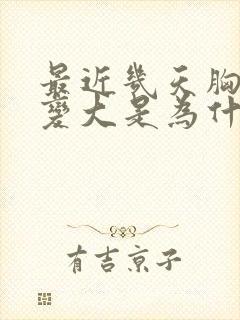 最近幾天胸
變大是為什
有吉京子